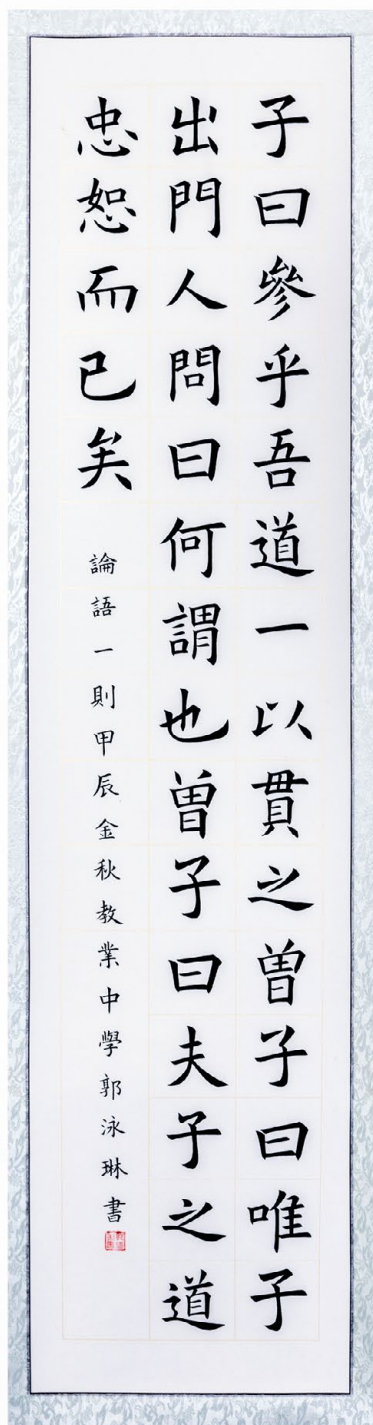 子曰參乎吾道一以貫之曾子曰唯子
出門人問曰何謂也曾子曰夫子之道
忠恕而已矣
論語一則甲辰金秋教業中學郭泳琳書